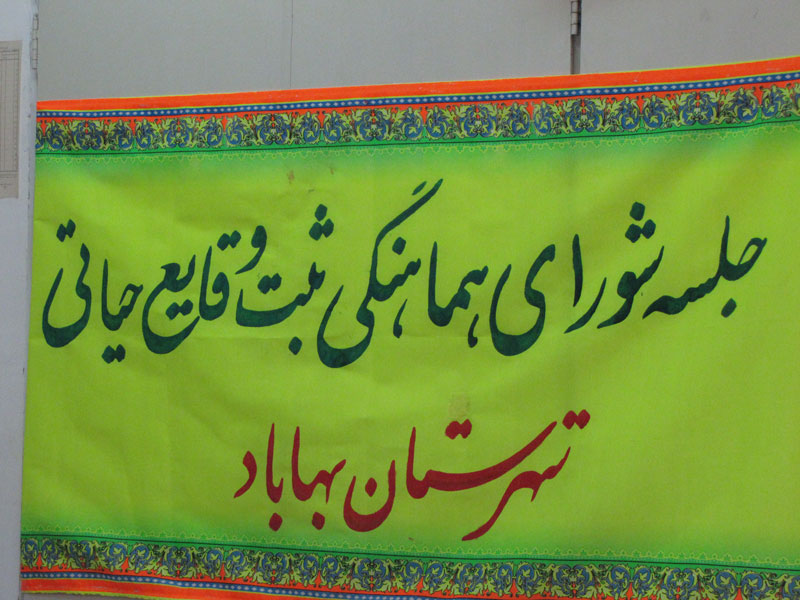 جلسه شورای هماهنگی ثبت وقایع حیاتی
شهرستان بهاباد